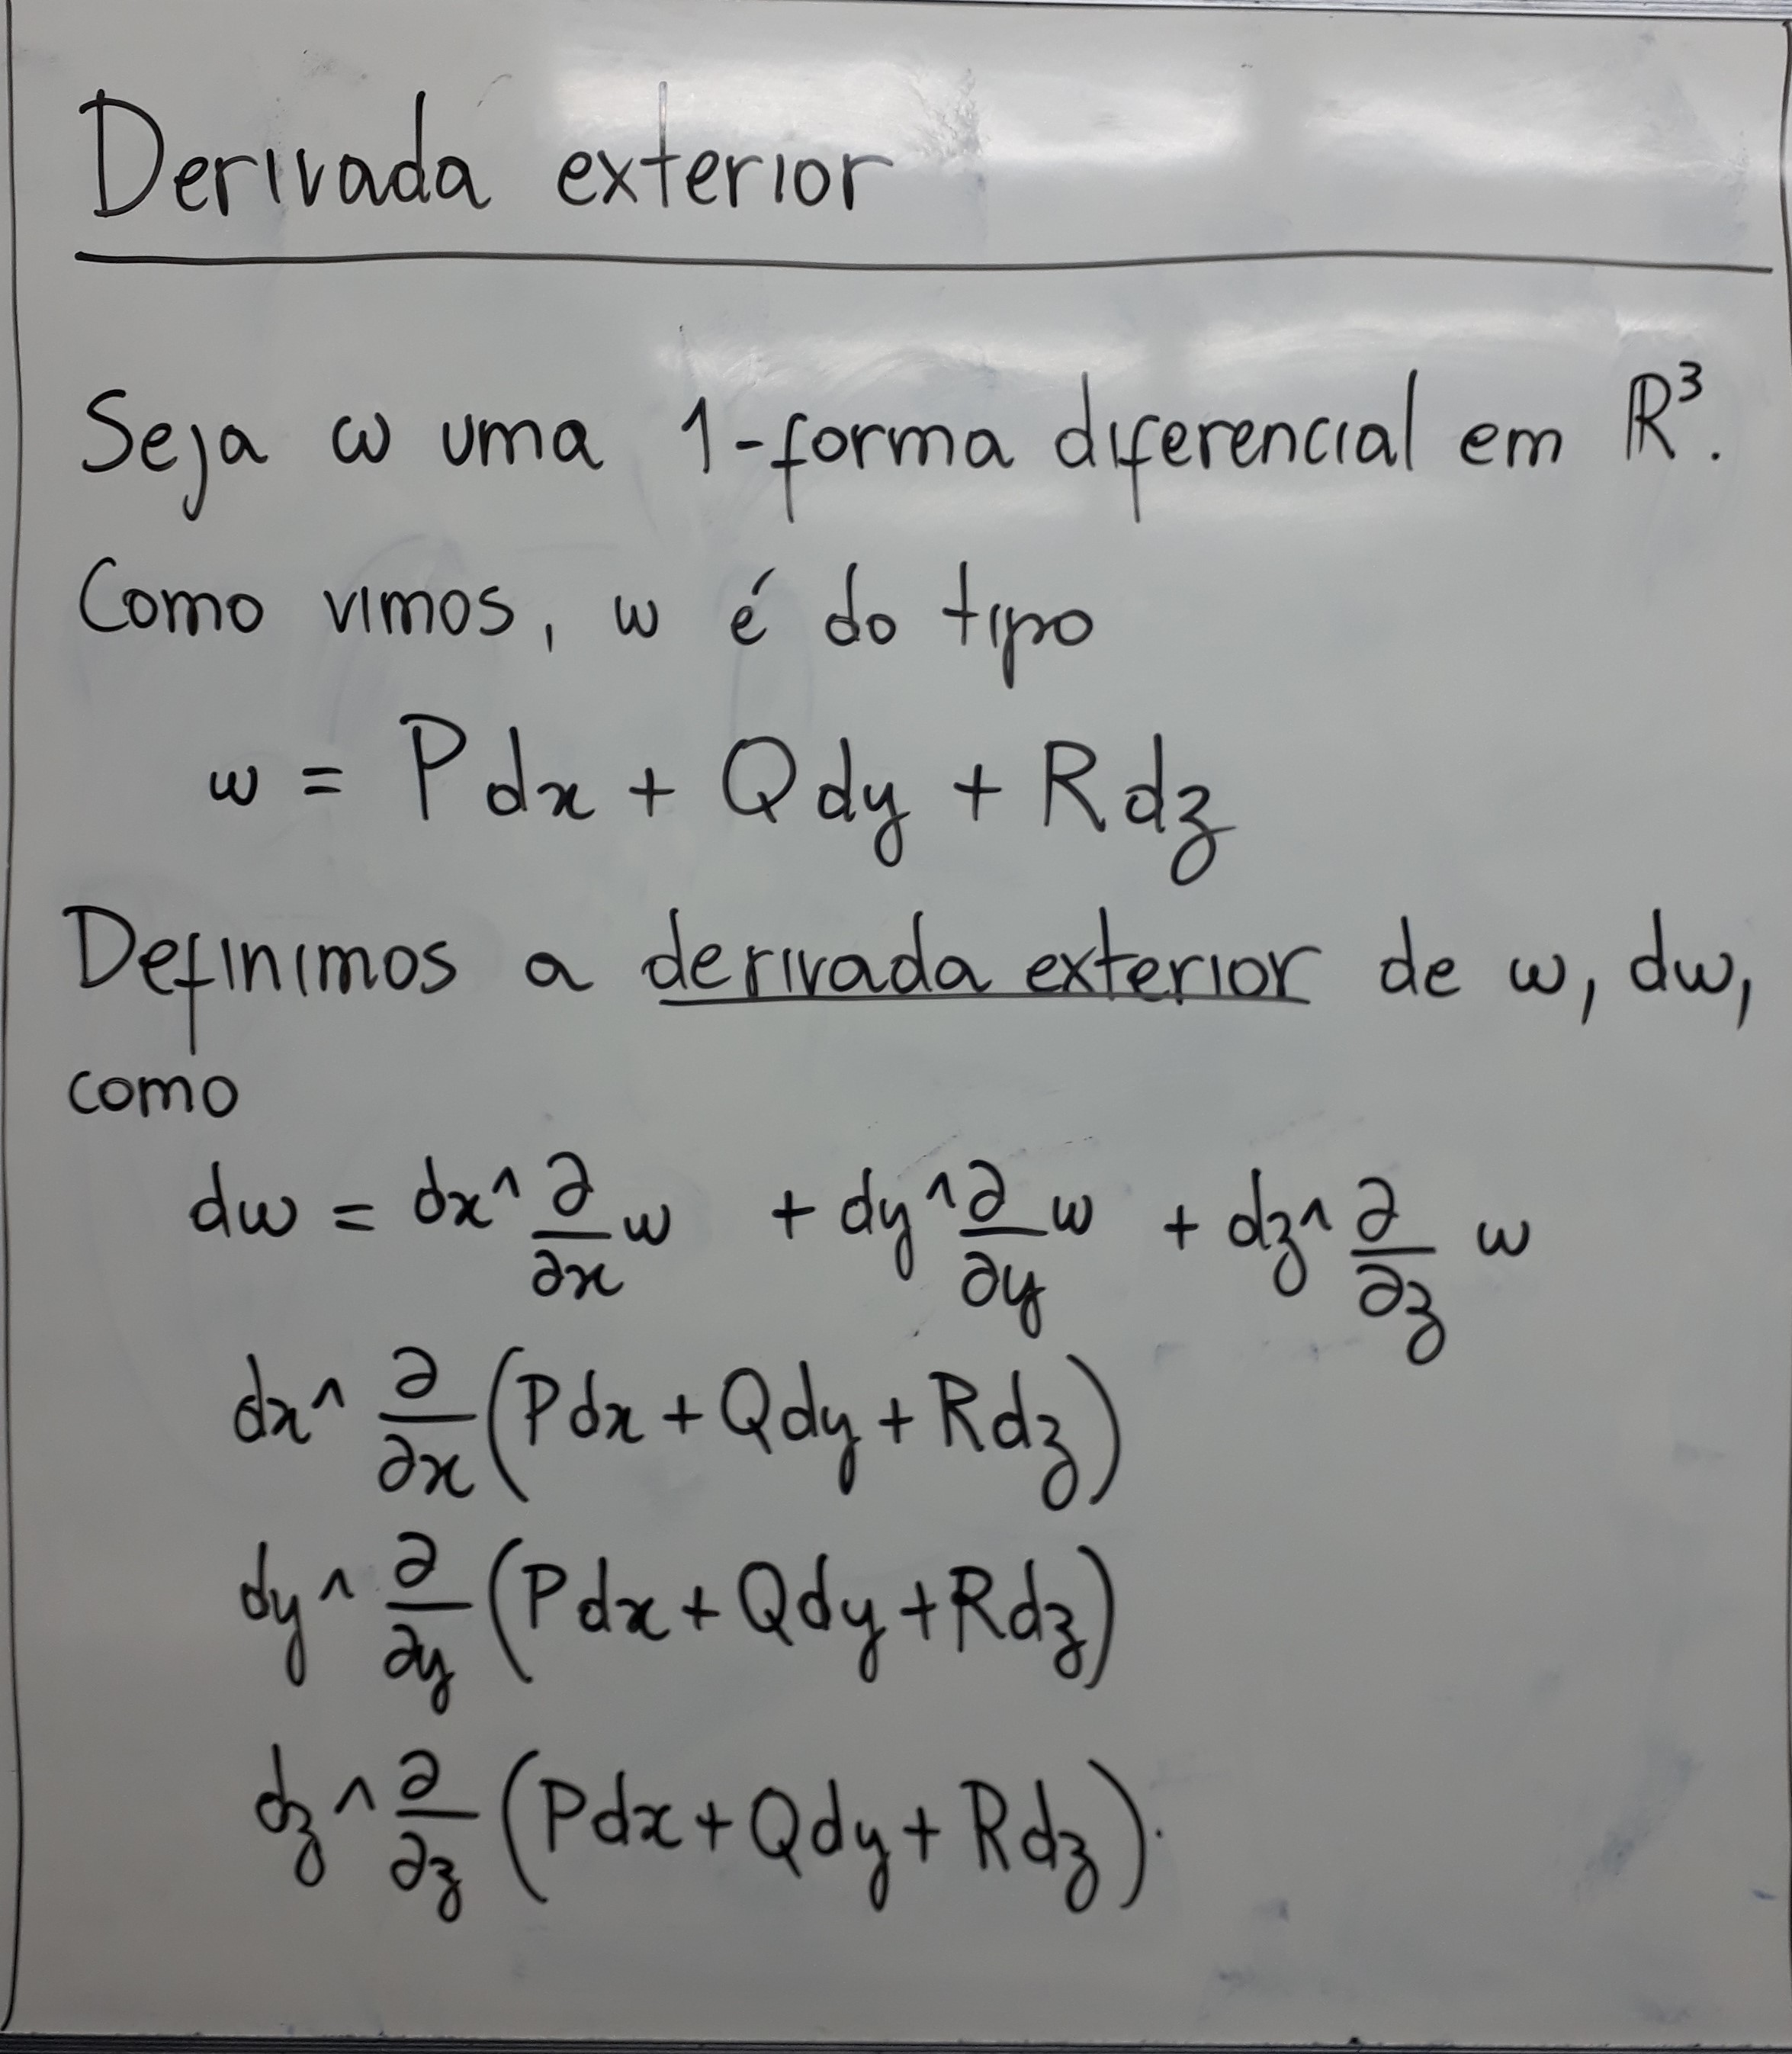 Derivada exterior
Seja ω uma 1-forma diferencial em ℝ³.
Como vimos, ω é do tipo
ω = P dx + Q dy + R dz
Definimos a derivada exterior de ω, dω,
como
dω = dx ∧ ∂/∂x ω + dy ∧ ∂/∂y ω + dz ∧ ∂/∂z ω
dx ∧ ∂/∂x (P dx + Q dy + R dz)
dy ∧ ∂/∂y (P dx + Q dy + R dz)
dz ∧ ∂/∂z (P dx + Q dy + R dz).